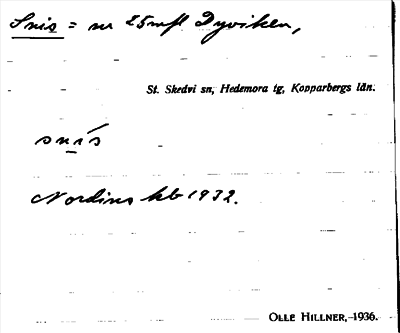 Snis = nr 25 mfl Dyviken,
St. Skedvi sn, Hedemora tg, Kopparbergs län.
Nordins kb 1932.
OLLE HILLNER, 1936.